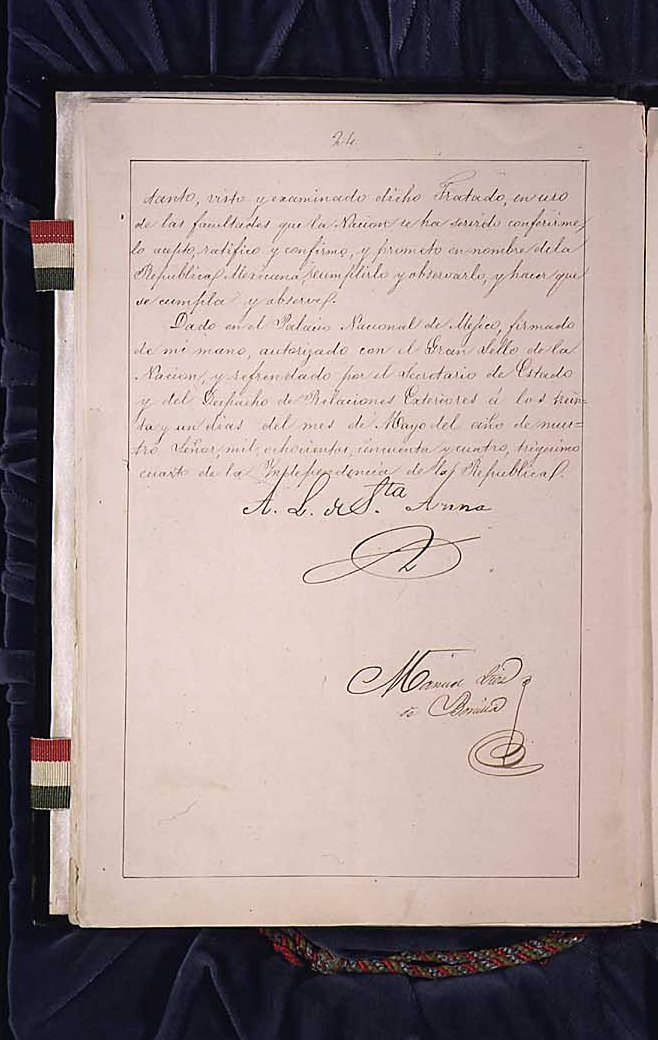 24.
tanto, visto y examinado dicho Tratado, en uso
de las facultades que la Nacion se ha servido conferirme,
lo acepto, ratifico y confirmo, y prometo en nombre de la
Republica Mexicana, cumplirlo y observarlo, y hacer que
se cumpla y observe.
Dado en el Palacio Nacional de Mejico, firmado
de mi mano, autorizado con el Gran Sello de la
Nacion, y refrendado por el Secretario de Estado
y del Despacho de Relaciones Exteriores á los trein-
ta y un dias del mes de Mayo del año de nues-
tro Señor, mil, ochocientos, cincuenta y cuatro, trigesimo
cuarto de la Independencia de la Republica.
A. L. de Sta. Anna
Manuel Diez
de Bonilla